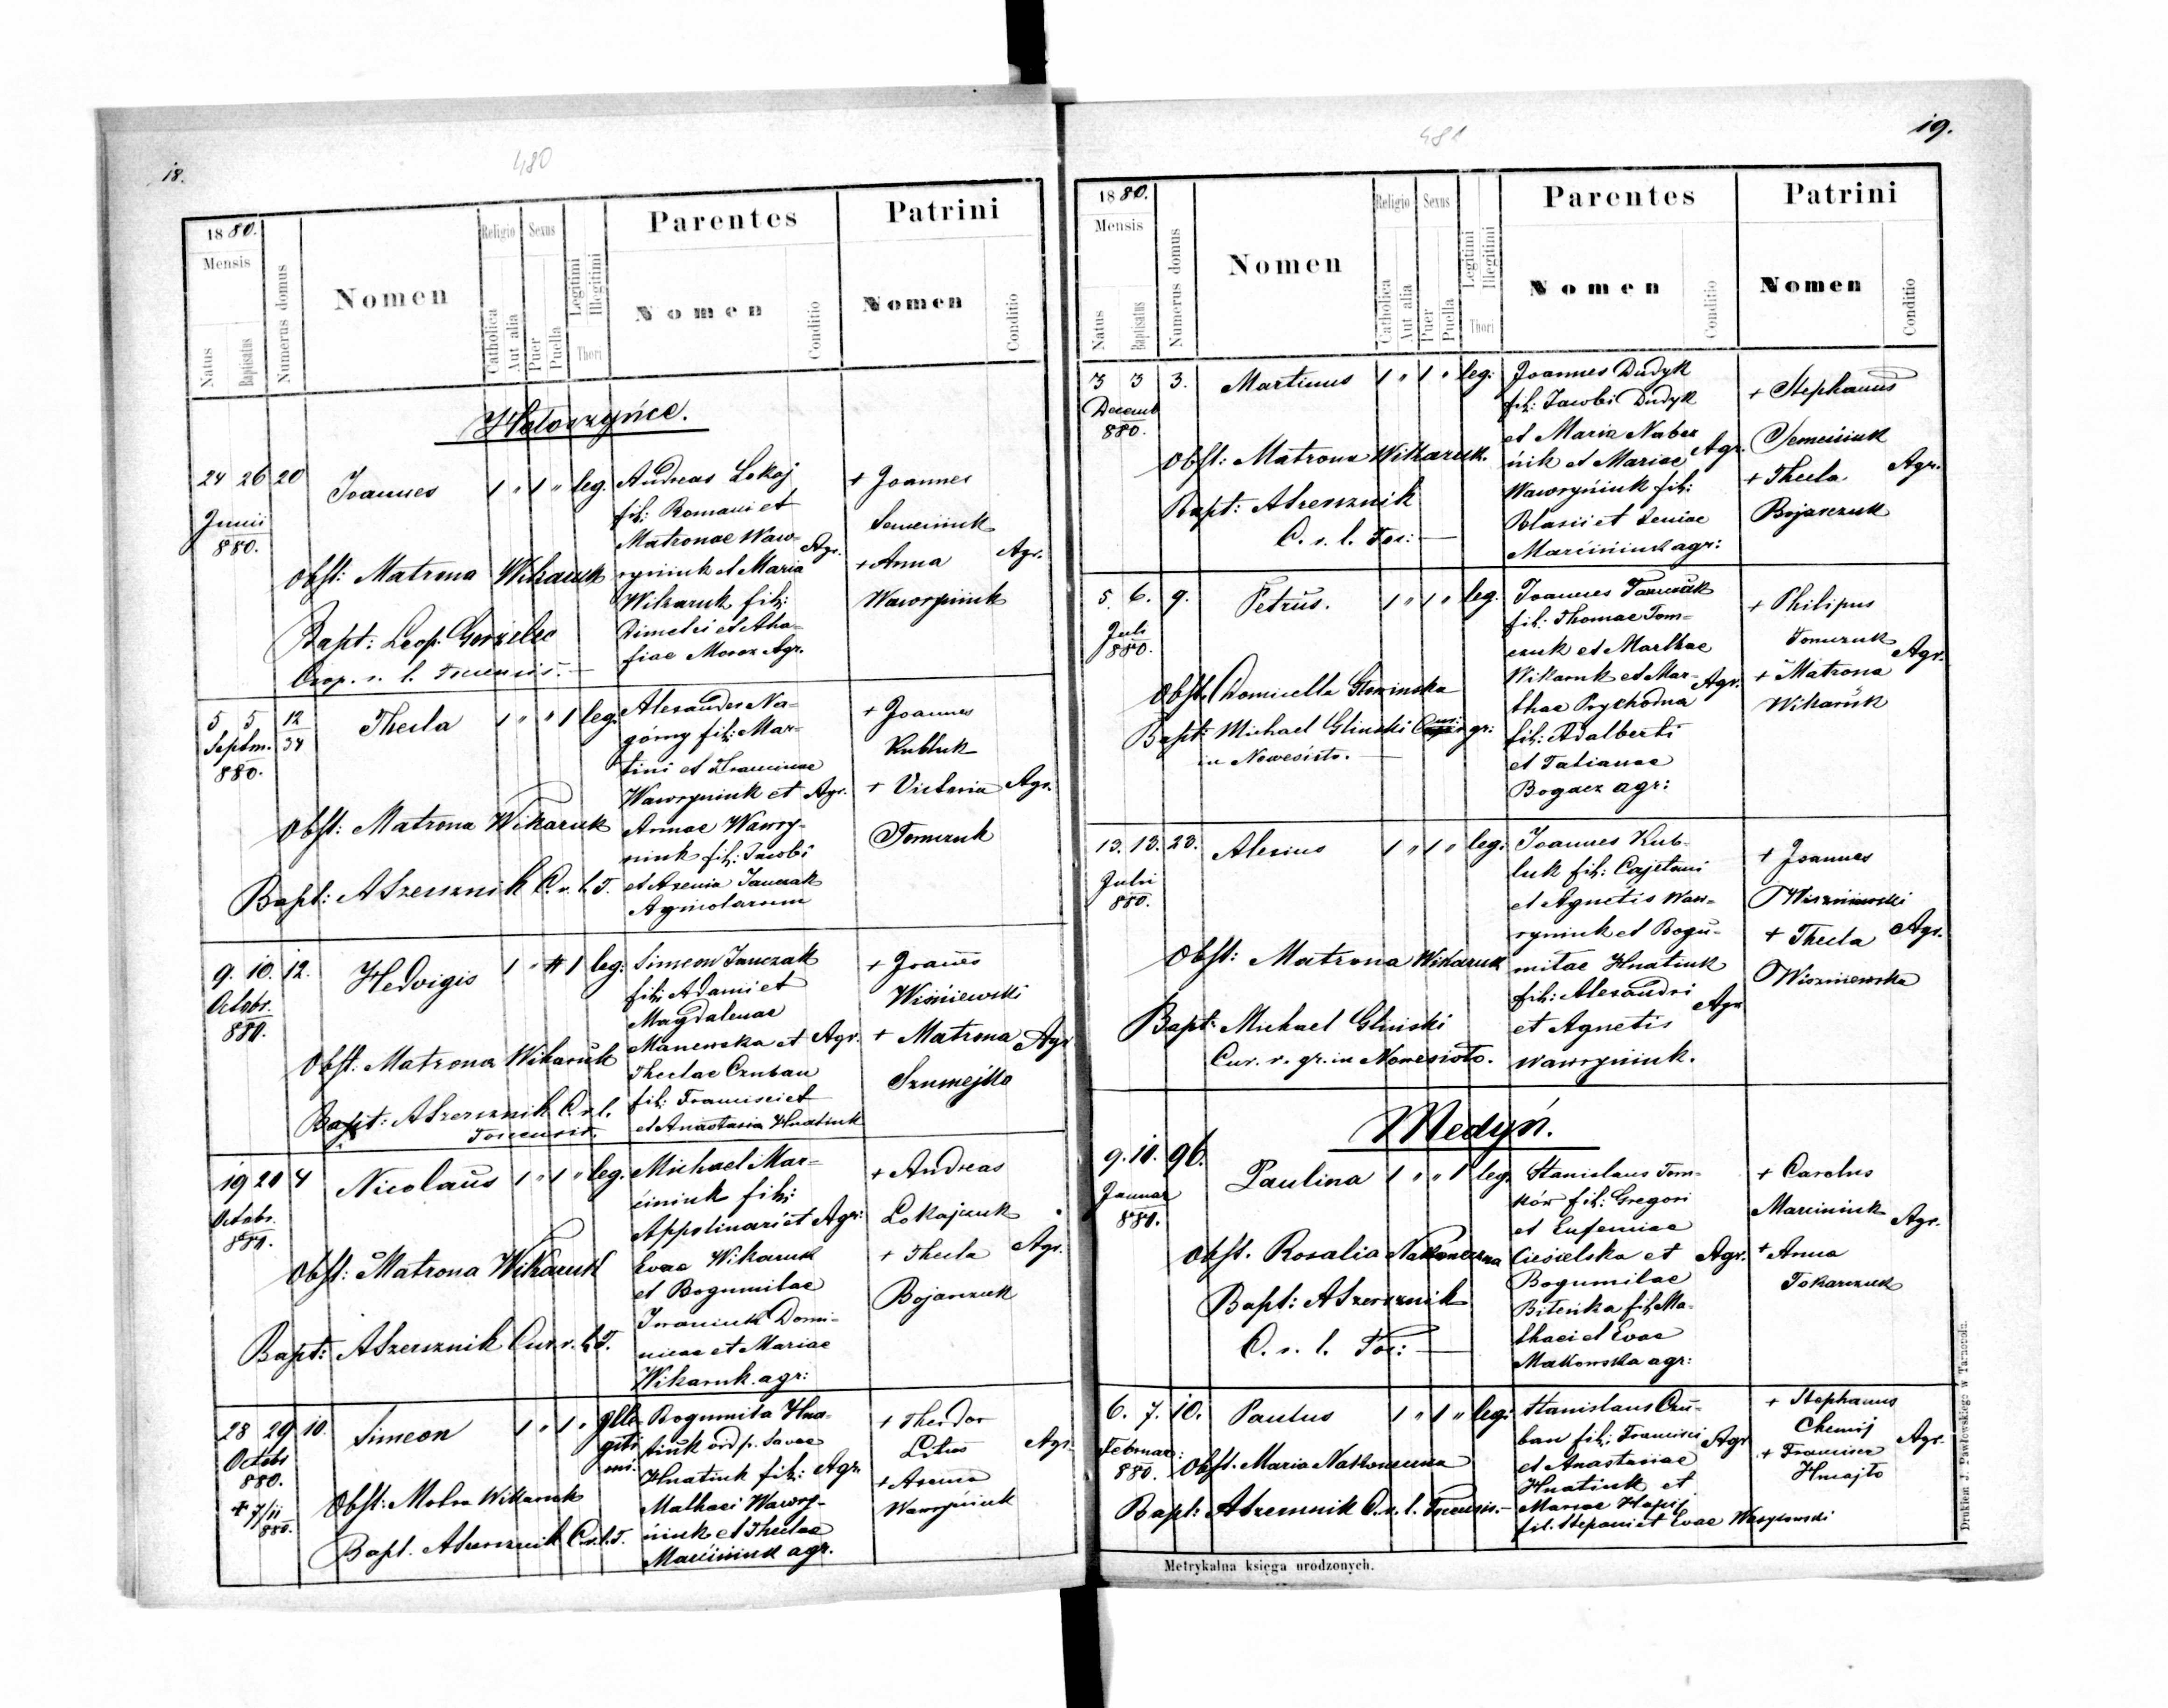 18.
480
1880.
Mensis
Natus
Baptisatus
Numerus domus
Nomen
Religio
Catholica
Aut alia
Sexus
Puer
Puella
Legitimi
Illegitimi
Thori
Parentes
Nomen
Conditio
Patrini
Nomen
Conditio
24 26 20
Junii
880.
Joannes 1 " 1 " leg.
Obst: Matrona Wikaruk
Bapt: Leop. Gorzelec
Coop. r. l. Toucensis.
Andreas Lokaj
fil: Romani et
Matronae Waw-
ryniuk et Maria Agr.
Wikaruk fil:
Dimetri et Aha-
fiae Moroz Agr.
+ Joannes
Semeniuk
+ Anna Agr.
Wawryniuk
5 5 12/34
Septm.
880.
Thecla 1 " " 1 leg.
Obst: Matrona Wikaruk
Bapt: ASzersznik C. r. l. T.
Alexander Na-
górny fil: Mar-
tini et Franciscae
Wawryniuk et Agr.
Annae Wawry-
niuk fil: Jacobi
et Axenia Janczak
Agricolarum
+ Joannes
Kubluk
+ Victoria Agr.
Tomczuk
9. 10. 12.
Octobr.
880.
Hedvigis 1 " 1 leg:
Obst. Matrona Wikaruk
Bapt: ASzersznik C. r. l.
Toucensis.
Simeon Janczak
fil: Adami et
Magdalenae
Manewska et Agr.
Theclae Czuban
fil: Francisci et
et Anastasia Hnatiuk
+ Joannes
Wiśniewski
+ Matrona Agr.
Szumejko
19 20 4
Octobr.
880.
Nicolaus 1 " 1 " leg.
Obst: Matrona Wikaruk
Bapt: ASzersznik Cur. r. l. T.
Michael Mar-
ciniuk fil:
Appolinari et Agr:
Evae Wikaruk
et Bogumilae
Iwaniuk Domi-
nicae et Mariae
Wikaruk agr:
+ Andreas
Lokajczuk
+ Thecla Agr.
Bojarczuk
28 29 10.
Octobr
880.
+ 7/11
880.
Simeon 1 " 1 " Ille-
giti
mi.
Obst: Motra Wikaruk
Bapt. ASzersznik C. r. l. T.
Bogumila Hna-
tiuk vid p. Savae
Hnatiuk fil: Agr.
Mathaei Wawry-
niuk et Theclae
Marciniuk agr.
+ Theodor
+ Axenia
Wawryniuk
Agr.
19.
481
1880.
Mensis
Natus
Baptisatus
Numerus domus
Nomen
Religio
Catholica
Aut alia
Sexus
Puer
Puella
Legitimi
Illegitimi
Thori
Parentes
Nomen
Conditio
Patrini
Nomen
Conditio
3 3 3.
Decemb
880.
Martinus 1 " 1 " leg:
Obst: Matrona Wikaruk.
Bapt: ASzersznik
C. r. l. Toc:
Joannes Dudyk
fil: Jacobi Dudyk
et Maria Naber
nik et Mariae Agr.
Wawryniuk fil:
Blasii et Xeniae
Marciniuk agr:
+ Stephanus
Semeniuk
+ Thecla Agr.
Bojarczuk
5. 6. 9.
Juli
880.
Petrus. 1 " 1 " leg.
Obst. Domicella Glozinska
Bapt: Michael Glinski Cur. r. gr:
in Nowesioło.
Joannes Tomczuk
fil: Thomae Tom-
czuk et Marthae
Wikaruk et Mar- Agr.
thae Prychodna
fil: Adalberti
et Tatianae
Bogacz agr:
+ Philipus
Tomczuk
+ Matrona Agr.
Wikaruk
13. 13. 23.
Julii
880.
Alexius 1 " 1 " leg:
Obst: Matrona Wikaruk
Bapt: Michael Glinski
Cur. r. gr. in Nowesioło.
Joannes Kub-
luk fil: Cajetani
et Agnetis Waw-
ryniuk et Bogu-
milae Hnatiuk
fil: Alexandri Agr
et Agnetis
Wawryniuk.
+ Joannes
Wiszniewski
+ Thecla Agr.
Wiszniewska
Medyń.
9. 10. 96.
Januar
880.
Paulina 1 " " 1 leg.
Obst. Rosalia Nakoneczna
Bapt: ASzersznik
C. r. l. Toc:
Stanislaus Tom-
ków fil: Gregori
et Eufemiae
Ciesielska et Agr.
Bogumilae
Bileńka fil: Ma-
thaei et Evae
Makowska agr:
+ Carolus
Marciniuk
+ Anna Agr.
Tokarczuk
6. 7. 10.
Februar:
880.
Paulus 1 " 1 " leg:
Obst. Maria Nakoneczna
Bapt: ASzersznik C. r. l. Toucensis.
Stanislaus Czu-
ban fil: Francisci Agr
et Anastasiae
Hnatiuk et
Mariae
fil. Stepani et Evae
+ Stephanus
+ Agr.
Metrykalna księga urodzonych.
Drukiem J. Pawłowskiego w Tarnopolu.